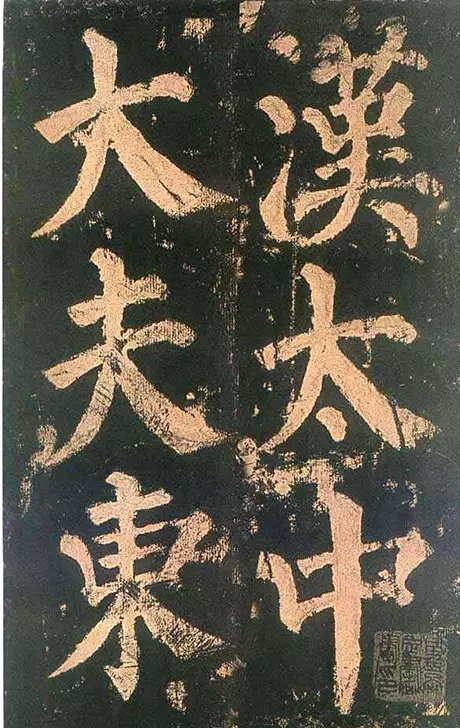 漢太中
大夫東